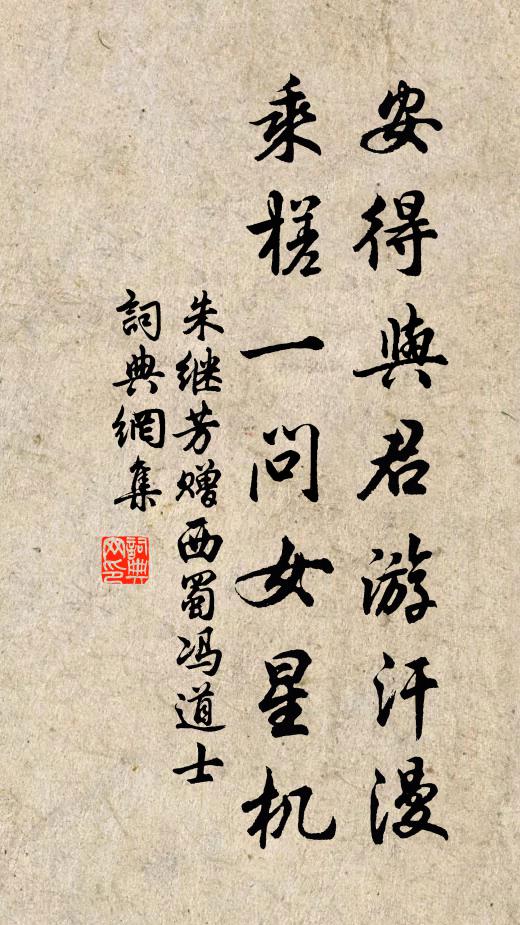 安得與君游汗漫
乘槎一问女星机
朱继芳赠西蜀冯道士
詞典網集
詞典网印